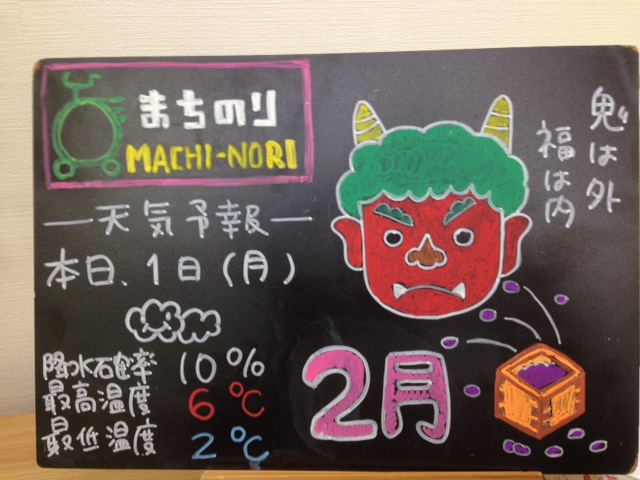 まちのり
MACHI-NORI
鬼は外
福は内
―天気予報―
本日、1日(月)
降水確率 10%
最高温度 6℃
最低温度 2℃
2月